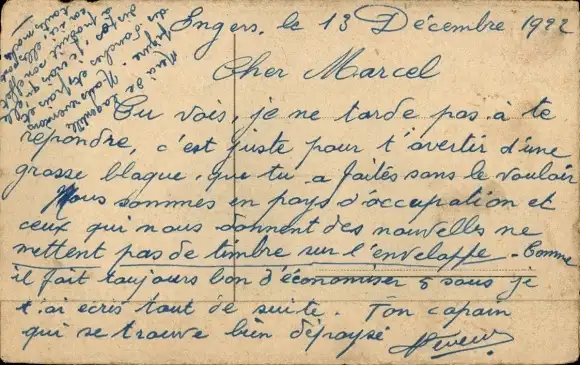 Engers, le 13 Décembre 1922
Cher Marcel
Tu vois, je ne tarde pas à te
repondre, c'est juste pour t'avertir d'une
grosse blague, que tu a faites sans le vouloir
Nous sommes en pays d'occupation et
ceux qui nous donnent des nouvelles ne
mettent pas de timbre sur l'enveloppe - Comme
il fait toujours bon d'économiser 5 sous je
t'ai ecris tout de suite. Ton copain
qui se trouve bien dépaysé
Merci de ta